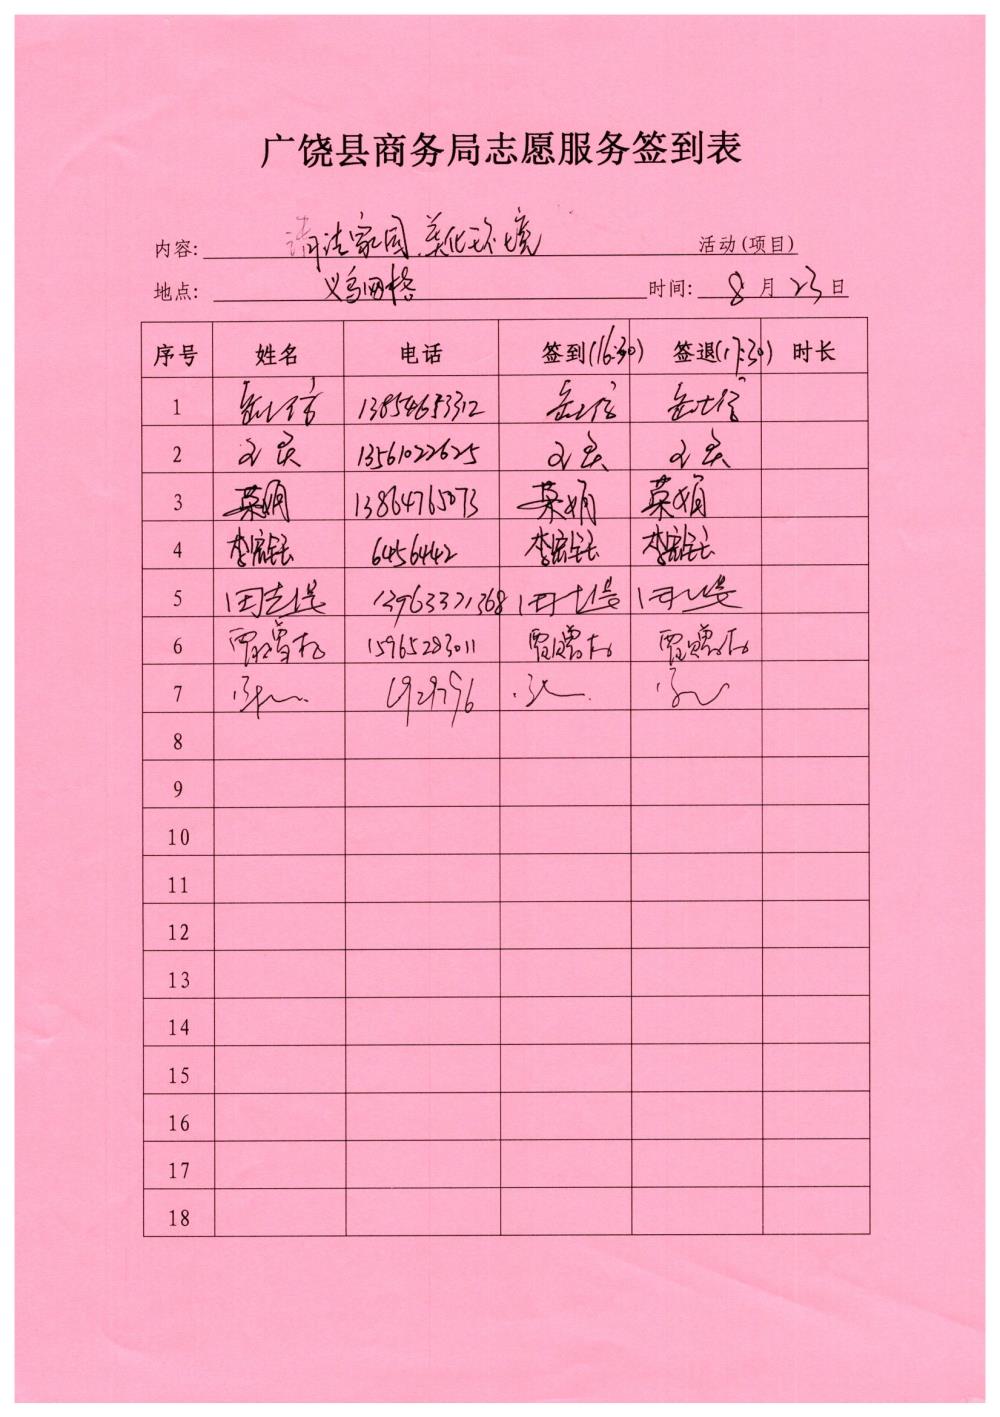 广饶县商务局志愿服务签到表
内容: 清洁家园、美化环境 活动(项目)
地点: 义乌网格 时间: 8 月 23 日
序号 姓名 电话 签到(16:30) 签退(17:30) 时长
1 13854653312
2 13561022625
3 荣娟 13864765073 荣娟 荣娟
4 李宏钰 6456442 李宏钰 李宏钰
5 13963371368
6 15965283011
7 6929796
8
9
10
11
12
13
14
15
16
17
18